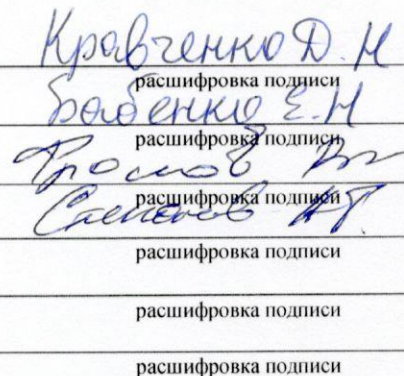 Кравченко Д.Н
расшифровка подписи
Бабенко Е.Н
расшифровка подписи
расшифровка подписи
расшифровка подписи
расшифровка подписи
расшифровка подписи